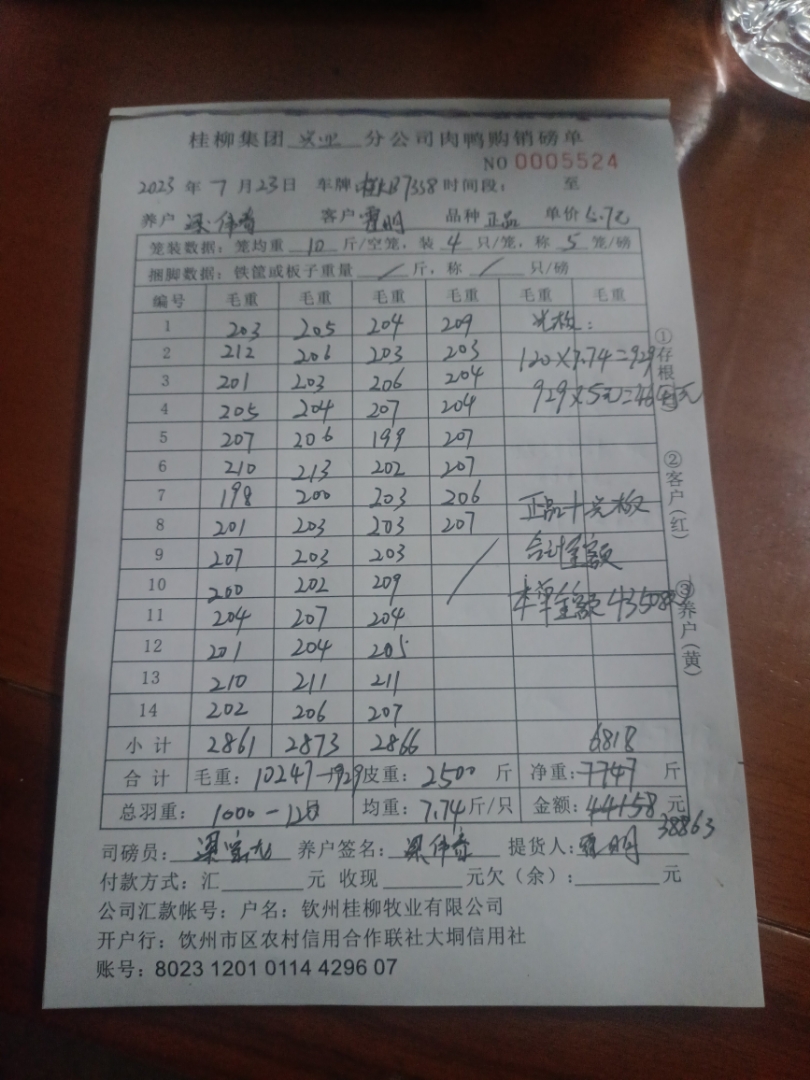 桂柳集团 兴业 分公司肉鸭购销磅单
NO 0005524
2023 年 7 月 23 日 车牌 桂KB7358 时间段: 至
养户 梁伟 客户 明 品种 正品 单价 5.7元
笼装数据: 笼均重 10 斤/空笼, 装 4 只/笼, 称 5 笼/磅
捆脚数据: 铁筐或板子重量 / 斤, 称 / 只/磅
编号 毛重 毛重 毛重 毛重 毛重 毛重
1 203 205 204 209 光板:
2 212 206 203 203 120×7.74=929
3 201 203 206 204 929×5元=4645元
4 205 204 207 204
5 207 206 199 207
6 210 213 202 207
7 198 200 203 206 正品+光板
8 201 203 203 207
9 207 203 203 / 合计金额
10 200 202 209
11 204 207 204 本单金额43508元
12 201 204 205
13 210 211 211
14 202 206 207
小计 2861 2873 2866 6818
合计 毛重: 10247-929 皮重: 2500 斤 净重: 7747 斤
总羽重: 1000-120 均重: 7.74斤/只 金额: 44158 元
38863
司磅员: 梁 养户签名: 梁伟 提货人: 明
付款方式: 汇 元 收现 元欠(余): 元
公司汇款帐号: 户名: 钦州桂柳牧业有限公司
开户行: 钦州市区农村信用合作联社大垌信用社
账号: 8023 1201 0114 4296 07
①存根
②客户(红)
③养户(黄)